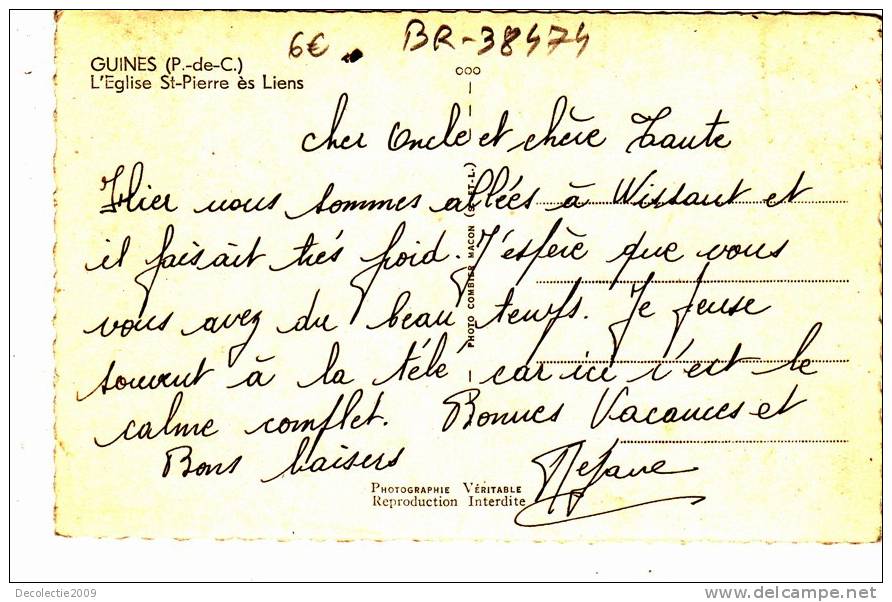 6€ BR-38474
GUINES (P.-de-C.)
L'Eglise St-Pierre ès Liens
cher Oncle et chère Tante
Hier nous sommes allées à Wissant et
il faisait très froid. J'espère que vous
vous avez du beau temps. Je pense
souvent à la télé car ici c'est le
calme complet. Bonnes Vacances et
Bons baisers Réjane
PHOTO COMBIER MACON (S.-ET-L.)
PHOTOGRAPHIE VÉRITABLE
Reproduction Interdite
Decolectie2009
www.delcampe.net